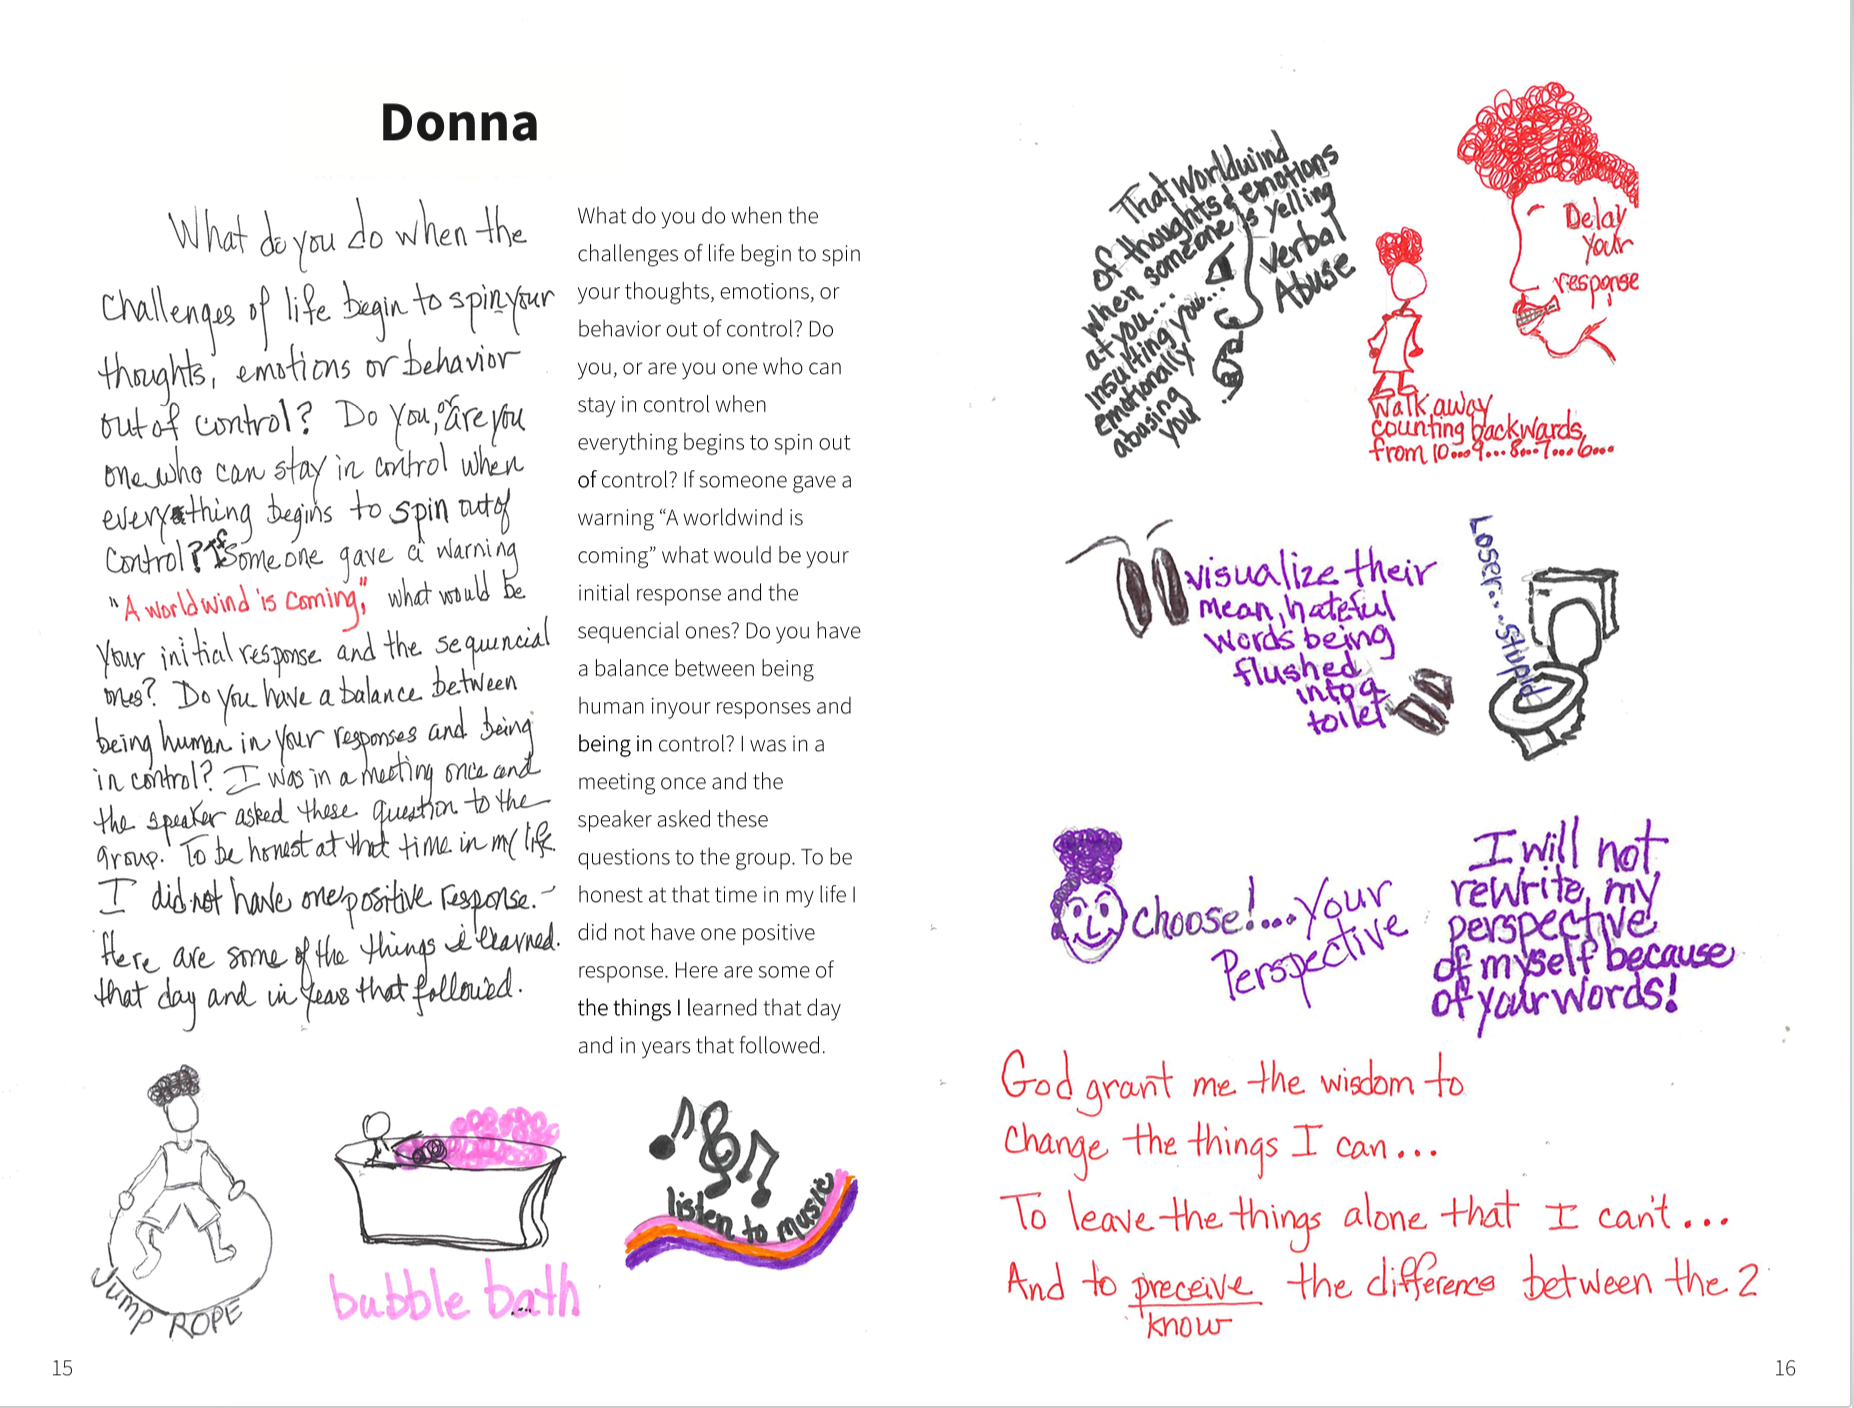 Donna
What do you do when the
challenges of life begin to spin your
thoughts, emotions or behavior
out of control? Do you, or are you
one who can stay in control when
everything begins to spin out of
control? If someone gave a warning
"A worldwind is coming," what would be
your initial response and the sequencial
ones? Do you have a balance between
being human in your responses and being
in control? I was in a meeting once and
the speaker asked these question to the
group. To be honest at that time in my life
I did not have one positive response. -
Here are some of the things i learned.
that day and in years that followed.
What do you do when the
challenges of life begin to spin
your thoughts, emotions, or
behavior out of control? Do
you, or are you one who can
stay in control when
everything begins to spin out
of control? If someone gave a
warning “A worldwind is
coming” what would be your
initial response and the
sequencial ones? Do you have
a balance between being
human inyour responses and
being in control? I was in a
meeting once and the
speaker asked these
questions to the group. To be
honest at that time in my life I
did not have one positive
response. Here are some of
the things I learned that day
and in years that followed.
JUMP ROPE
bubble bath
listen to music
15
That Worldwind
of thoughts & emotions
when someone is yelling
at you...
insulting you...
emotionally
abusing
you
Verbal
Abuse
Delay
your
response
Walk away
counting backwards
from 10...9...8...7...6...
visualize their
mean, hateful
words being
flushed
into a
toilet
Loser...stupid
Choose!...Your
Perspective
I will not
rewrite my
perspective
of myself because
of your words!
God grant me the wisdom to
change the things I can...
To leave the things alone that I can't...
And to preceive the difference between the 2
know
16